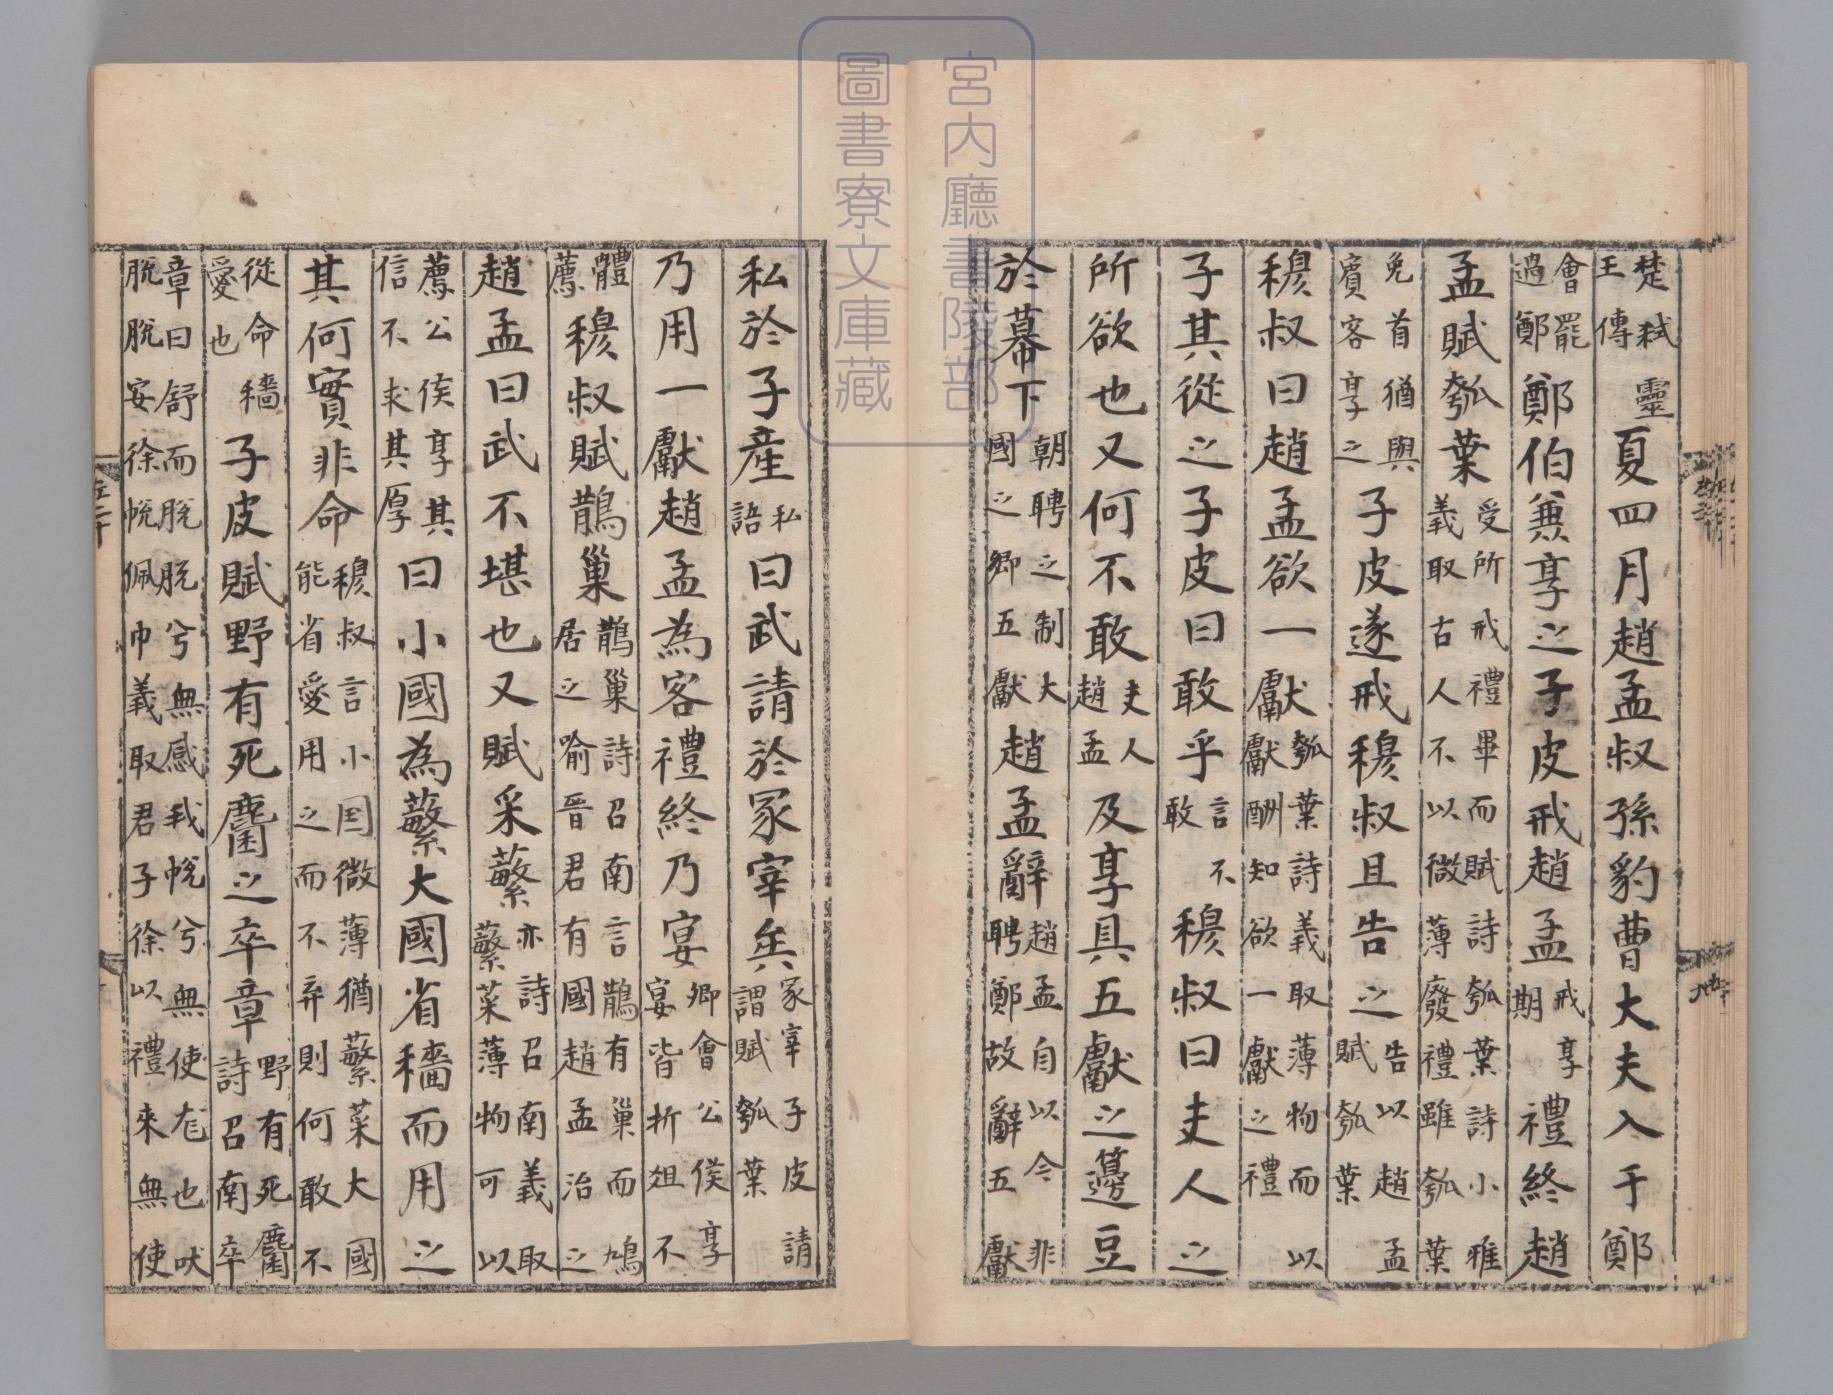 楚弒靈王傳夏四月趙孟叔孫豹曹大夫入于鄭
會罷過鄭鄭伯兼享之子皮戒趙孟戒享期禮終趙
孟賦瓠葉受所戒禮畢而賦詩瓠葉詩小雅義取古人不以微薄廢禮雖瓠葉
免首猶與賓客享之子皮遂戒穆叔且告之告以趙孟賦瓠葉
穆叔曰趙孟欲一獻瓠葉詩義取薄物而以獻酬知欲一獻之禮
子其從之子皮曰敢乎言不敢穆叔曰夫人之
所欲也又何不敢夫人趙孟及享具五獻之籩豆
於幕下朝聘之制大國之卿五獻趙孟辭趙孟自以今非聘鄭故辭五獻
私於子產私語曰武請於冢宰矣冢宰子皮請謂賦瓠葉
乃用一獻趙孟為客禮終乃宴卿會公侯享宴皆折俎不
體薦穆叔賦鵲巢鵲巢詩召南言鵲有巢而鳩居之喻晉君有國趙孟治之
趙孟曰武不堪也又賦采蘩亦詩召南義取蘩菜薄物可以
薦公侯享其信不求其厚曰小國為蘩大國省穡而用之
其何實非命穆叔言小国微薄猶蘩菜大國能省愛用之而不弃則何敢不
從命穡愛也子皮賦野有死麕之卒章野有死麕詩召南卒
章曰舒而脫脫兮無感我帨兮無使尨也吠脫脫安徐帨佩巾義取君子徐以禮來無使
宮內廳書陵部
圖書寮文庫藏